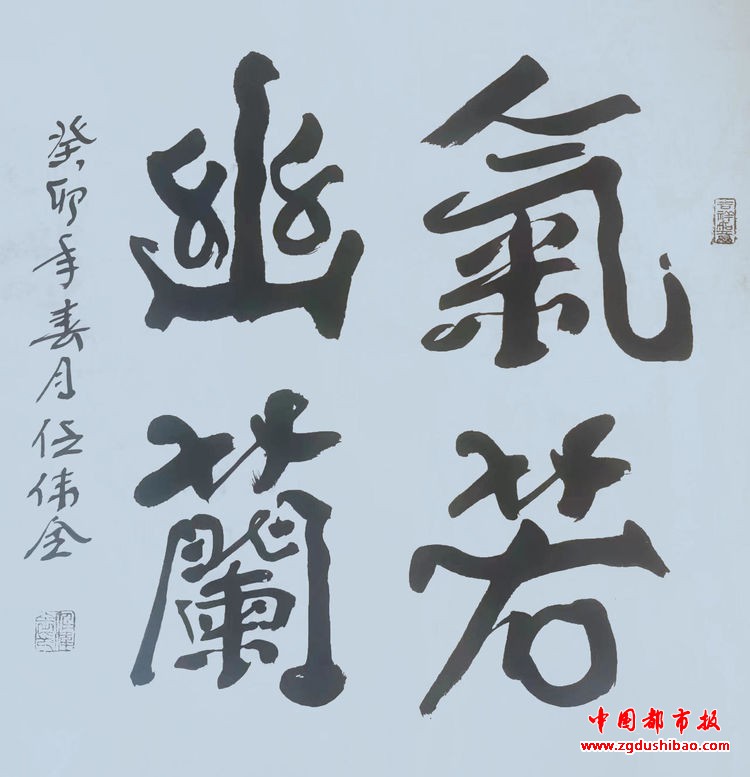 氣若
幽蘭
癸卯年春月任伟全
吉祥如意
中国都市报
www.zgdushibao.com